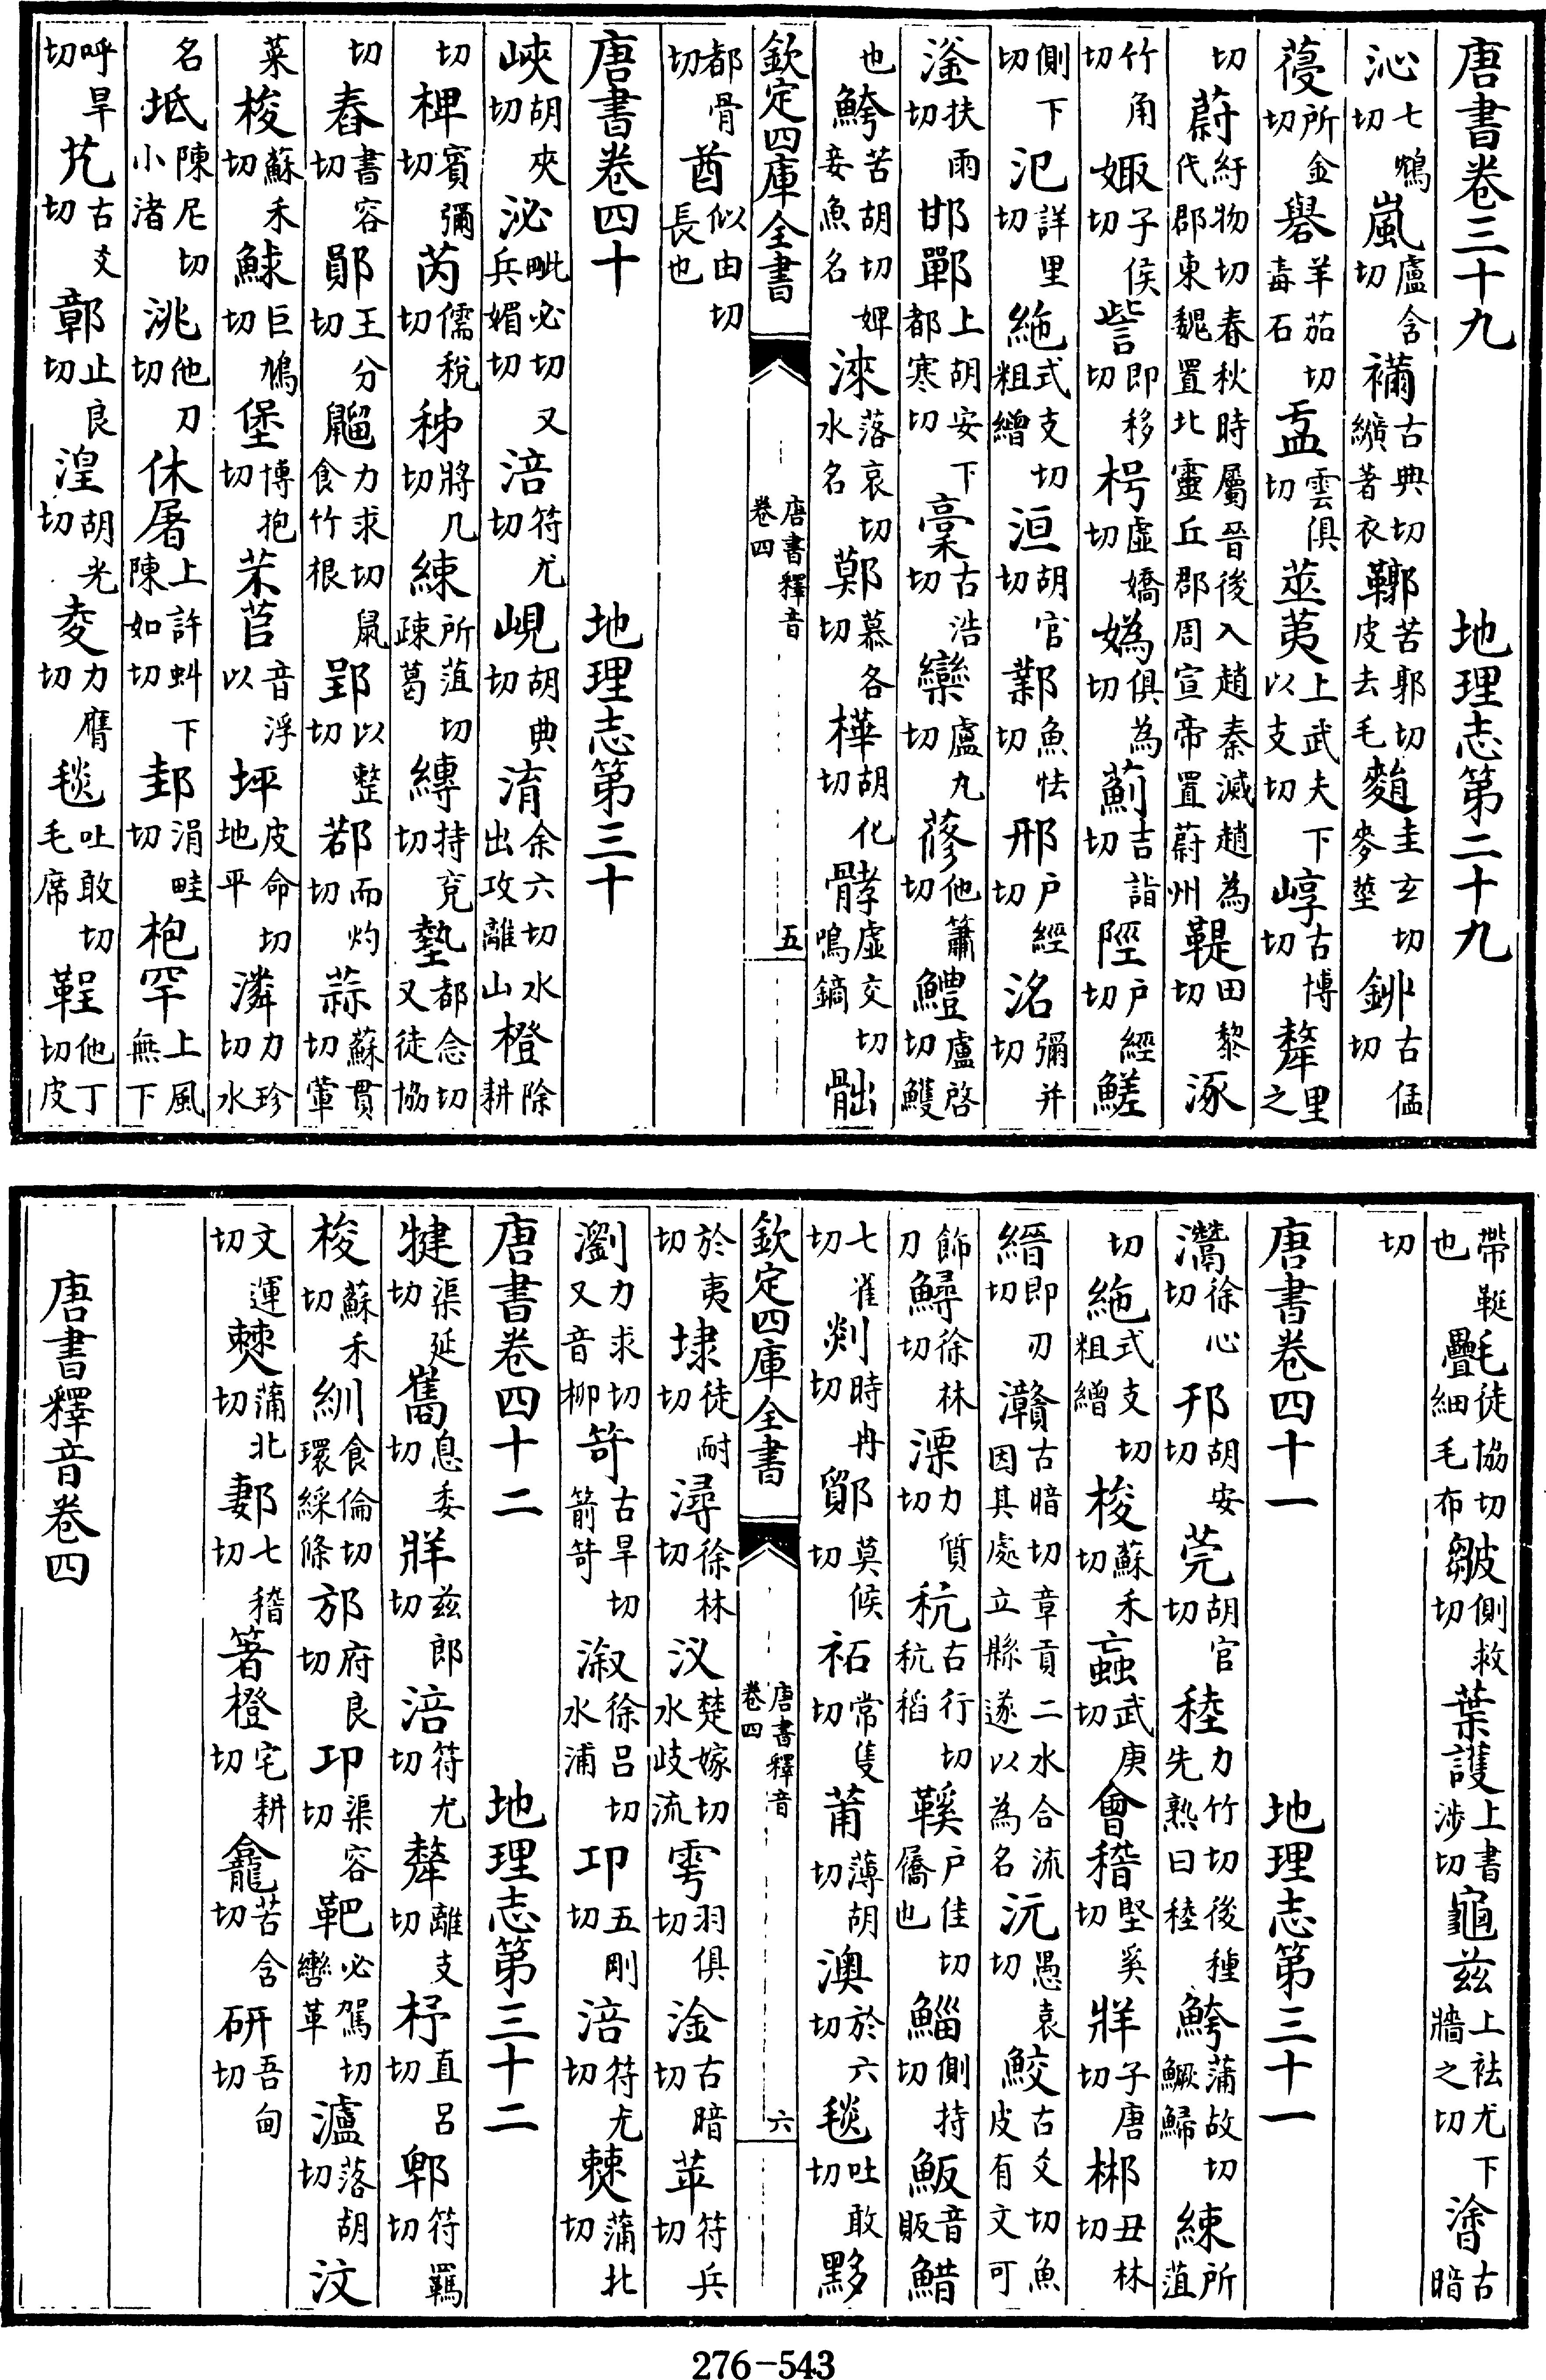 唐書卷三十九　地理志第二十九
沁七鴆切嵐盧含切襺古典切纊著衣鞹苦郭切皮去毛䴺圭玄切麥莖𨥥古猛切
葠所金切礜羊茹切毒石盂雲俱切莁荑上武夫下以支切崞古博切犛里之
切蔚紆物切春秋時屬晉後入趙秦滅趙為代郡東魏置北靈丘郡周宣帝置蔚州鞮田黎切涿
竹角切娵子侯切訾即移切枵虛嬌切媯俱為切薊吉詣切陘戶經切鮺
側下切汜詳里切絁式支切粗繒洹胡官切鄴魚怯切邢戶經切洺彌并切
滏扶雨切邯鄲上胡安下都寒切槀古浩切欒盧丸切蓚他簫切鱧盧啓切鱯
也鮬苦胡切婢妾魚名淶落哀切水名鄚慕各切樺胡化切髇虛交切鳴鏑䯏
欽定四庫全書　唐書釋音　卷四　五
都骨切酋似由切長也
唐書卷四十　地理志第三十
峽胡夾切泌毗必切又兵媚切涪符尤切峴胡典切淯余六切水出攻離山橙除耕
切椑賓彌切芮儒稅切秭將几切綀所葅切疎葛縳持兗切墊都念切又徒協
切舂書容切鄖王分切䶉力求切鼠食竹根郢以整切鄀而灼切蒜蘇貫切葷
菜梭蘇禾切鯄巨鳩切堡博抱切芣苢音浮以坪皮命切地平潾力珍切水
名坻陳尼切小渚洮他刀切休屠上許蚪下陳如切邽涓畦切枹罕上風無下
呼旱切艽古爻切鄣止良切湟胡光切夌力膺切毯吐敢切毛席鞓他丁切皮
帶鞓也氎徒協切細毛布皺側救切葉護上書涉切龜茲上袪尤下牆之切澮古暗
切
唐書卷四十一　地理志第三十一
灊徐心切邗胡安切莞胡官切稑力竹切後種先熟曰稑鮬蒲故切鱖鯞綀所葅
切絁式支切粗繒梭蘇禾切蝱武庚切會稽堅奚切牂子唐切郴丑林切
縉即刃切灨古暗切章貢二水合流因其處立縣遂以為名沅愚袁切鮫古爻切魚皮有文可
飾刀鱘徐林切溧力質切秔古行切秔稻鞵戶佳切屩也鯔側持切魬音販䱜
七雀切剡時冉切鄮莫候切祏常隻切莆薄胡切澳於六切毯吐敢切黟
欽定四庫全書　唐書釋音　卷四　六
於夷切埭徒耐切潯徐林切汊楚嫁切水歧流雩羽俱切淦古暗切苹符兵切
瀏力求切又音柳笴古旱切箭笴漵徐呂切水浦卭五剛切涪符尤切僰蒲北切
唐書卷四十二　地理志第三十二
犍渠延切巂息委切牂茲郎切涪符尤切犛離支切杼直呂切郫符羈切
梭蘇禾切紃食倫切環綵絛邡府良切卭渠容切靶必駕切轡革瀘落胡切汶
文運切僰蒲北切郪七稽切箸橙宅耕切龕苦含切研吾甸切
唐書釋音卷四
276-543